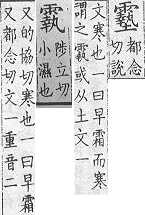 都念
切說
文寒也一曰早霜而寒
謂之䨴或从土文一
䨴
陟立切
小濕也
又的協切寒也一曰早霜
又都念切文一重音二